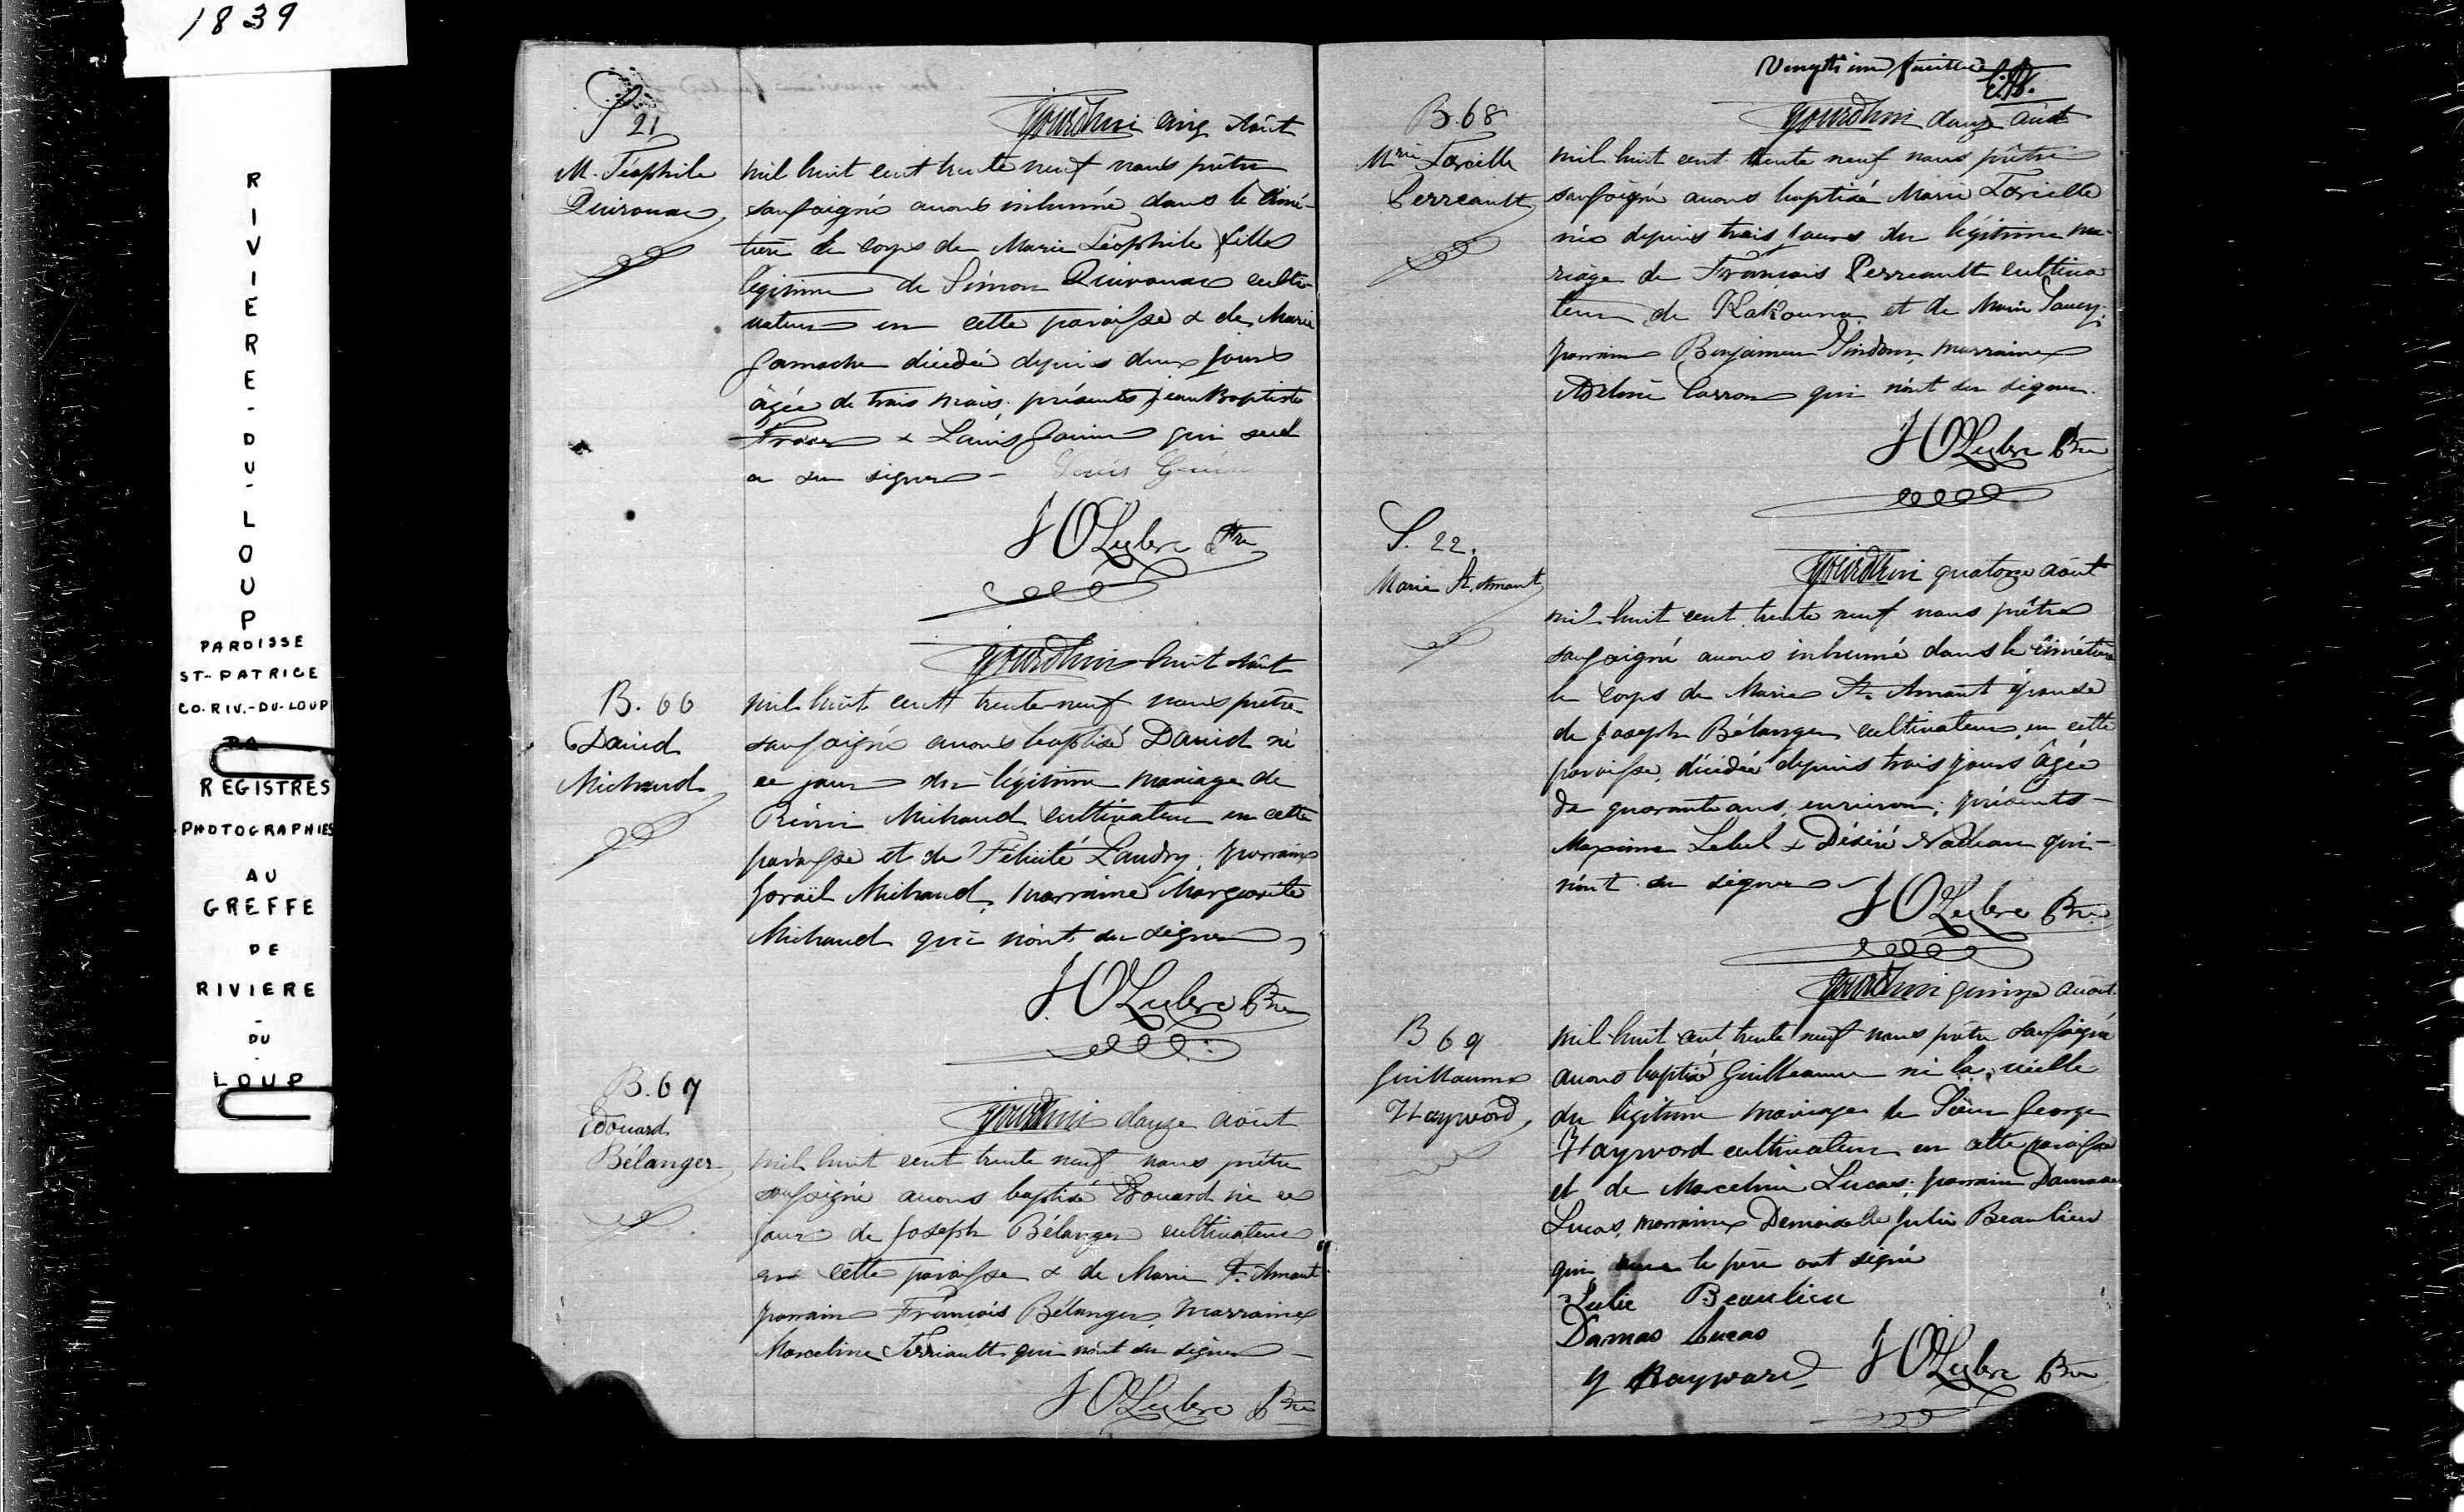 1839
RIVIERE-DU-LOUP
PAROISSE
ST-PATRICE
CO. RIV.-DU-LOUP
REGISTRES
PHOTOGRAPHIES
AU
GREFFE
DE
RIVIERE
-
DU
-
LOUP
S
21
M. Téophile
Quirouac
jourdhui cinq Août
mil huit cent trente neuf nous prêtre
soussigné avons inhumé dans le cimé-
tière le corps de Marie Téophile fille
légitime de Simon Quirouac culti-
vateur en cette paroisse & de Marie
Gamache décédée depuis deux jours
âgée de trois mois. présents Jean Baptiste
Fraser & Louis qui seul
a su signer - Louis
J O Leclerc Ptre
B. 66
David
Michaud
jourdhui huit Août
mil huit cent trente-neuf nous prêtre
soussigné avons baptisé David né
ce jour du légitime mariage de
Rémi Michaud cultivateur en cette
paroisse et de Félicité Landry, parrain
Israël Michaud, marraine Marguerite
Michaud qui n'ont su signer
J. O Leclerc Ptre
B. 67
Edouard
Bélanger
jourdhui douze août
mil huit cent trente neuf nous prêtre
soussigné avons baptisé Edouard né ce
jour de Joseph Bélanger cultivateur
en cette paroisse & de Marie St. Amant
parrain François Bélanger, marraine
Marceline Terriault qui n'ont su signer -
J O Leclerc Ptre
Vingtième feuillet
B. 68
Mrie Esoielle
Perreault
jourdhui douze août
mil huit cent trente neuf nous prêtre
soussigné avons baptisé Marie
née depuis trois jours du légitime ma-
riage de François Perreault cultiva
teur de Kakouna et de Marie Saucy.
parrain Benjamin marraine
Adeline Carron qui n'ont su signer.
J O Leclerc Ptre
S. 22.
Marie St. Amant
jourdhui quatorze août
mil huit cent trente neuf nous prêtre
soussigné avons inhumé dans le cimétière
le corps de Marie St. Amant épouse
de Joseph Bélanger cultivateur en cette
paroisse, décédée depuis trois jours âgée
de quarante ans environ; présents -
Maxime Lebel & Désiré Nadeau qui -
n'ont su signer
J O Leclerc Ptre
B 69
Guillaume
Hayword
jourdhui quinze août
mil huit cent trente neuf nous prêtre soussigné
avons baptisé Guilleaume né la veille
du légitime mariage de Sieur George
Hayword cultivateur en cette paroisse
et de Marceline Lucas; parrain Damase
Lucas, marraine Demoiselle Julie Beaulieu
qui avec le père ont signé
Julie Beaulieu
Damas Lucas
G Hayward J O Leclerc Ptre